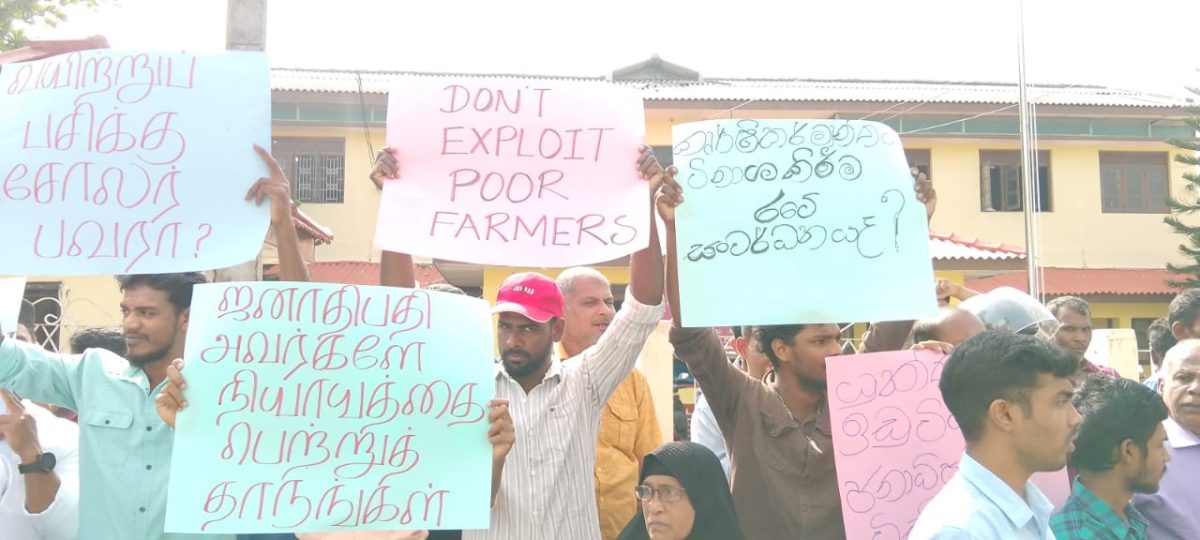 வயிற்றுப்
பசிக்கு
சோலர்
பவரா?
DON'T
EXPLOIT
POOR
FARMERS
කෘෂිකර්මාන්තය
විනාශකිරීම
රටේ
සංවර්ධනයද?
ஜனாதிபதி
அவர்களே
நியாயத்தை
பெற்றுத்
தாருங்கள்